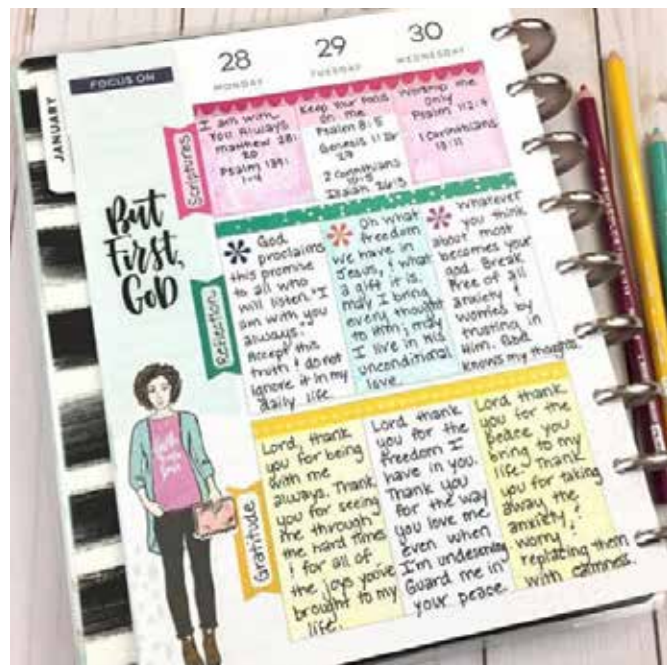 JANUARY
FOCUS ON
28
MONDAY
29
TUESDAY
30
WEDNESDAY
But
First,
GOD
Scriptures
I am with
You Always
matthew 28:
20
Psalm 139:
1-4
Keep Your Focus
on me
Psalm 8:5
Genesis 1:26
27
2 Corinthians
10:5
Isaiah 26:3
Worship me
Only
Psalm 112:4
1 Corinthians
13:11
Reflection
God
proclaims
this promise
to all who
will listen. "I
am with you
always."
Accept this
truth & do not
ignore it in my
daily life
Oh what
freedom
we have in
Jesus, & what
a gift it is.
may I bring
every thought
to Him; may
I live in his
unconditional
love.
Whatever
you think
about most
becomes your
god. Break
Free of all
anxiety &
worries by
trusting in
Him. God
knows my thoughts.
Gratitude
Lord, thank
you for being
with me
always. Thank
you for seeing
me through
the hard times
& for all of
the joys you've
brought to my
life.
Lord thank
you for the
freedom I
have in you.
Thank you
for the way
you love me
even when
I'm undeserving
Guard me in
your peace.
Lord, thank
you for the
peace you
bring to my
life. Thank
you for taking
away the
anxiety &
worry
replacing them
with calmness.